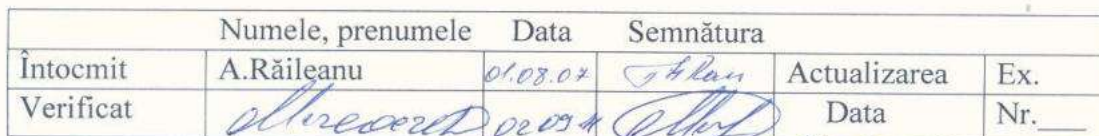 Numele, prenumele Data Semnătura
Întocmit A.Răileanu 01.08.07 Actualizarea Ex.
Verificat Data Nr.___